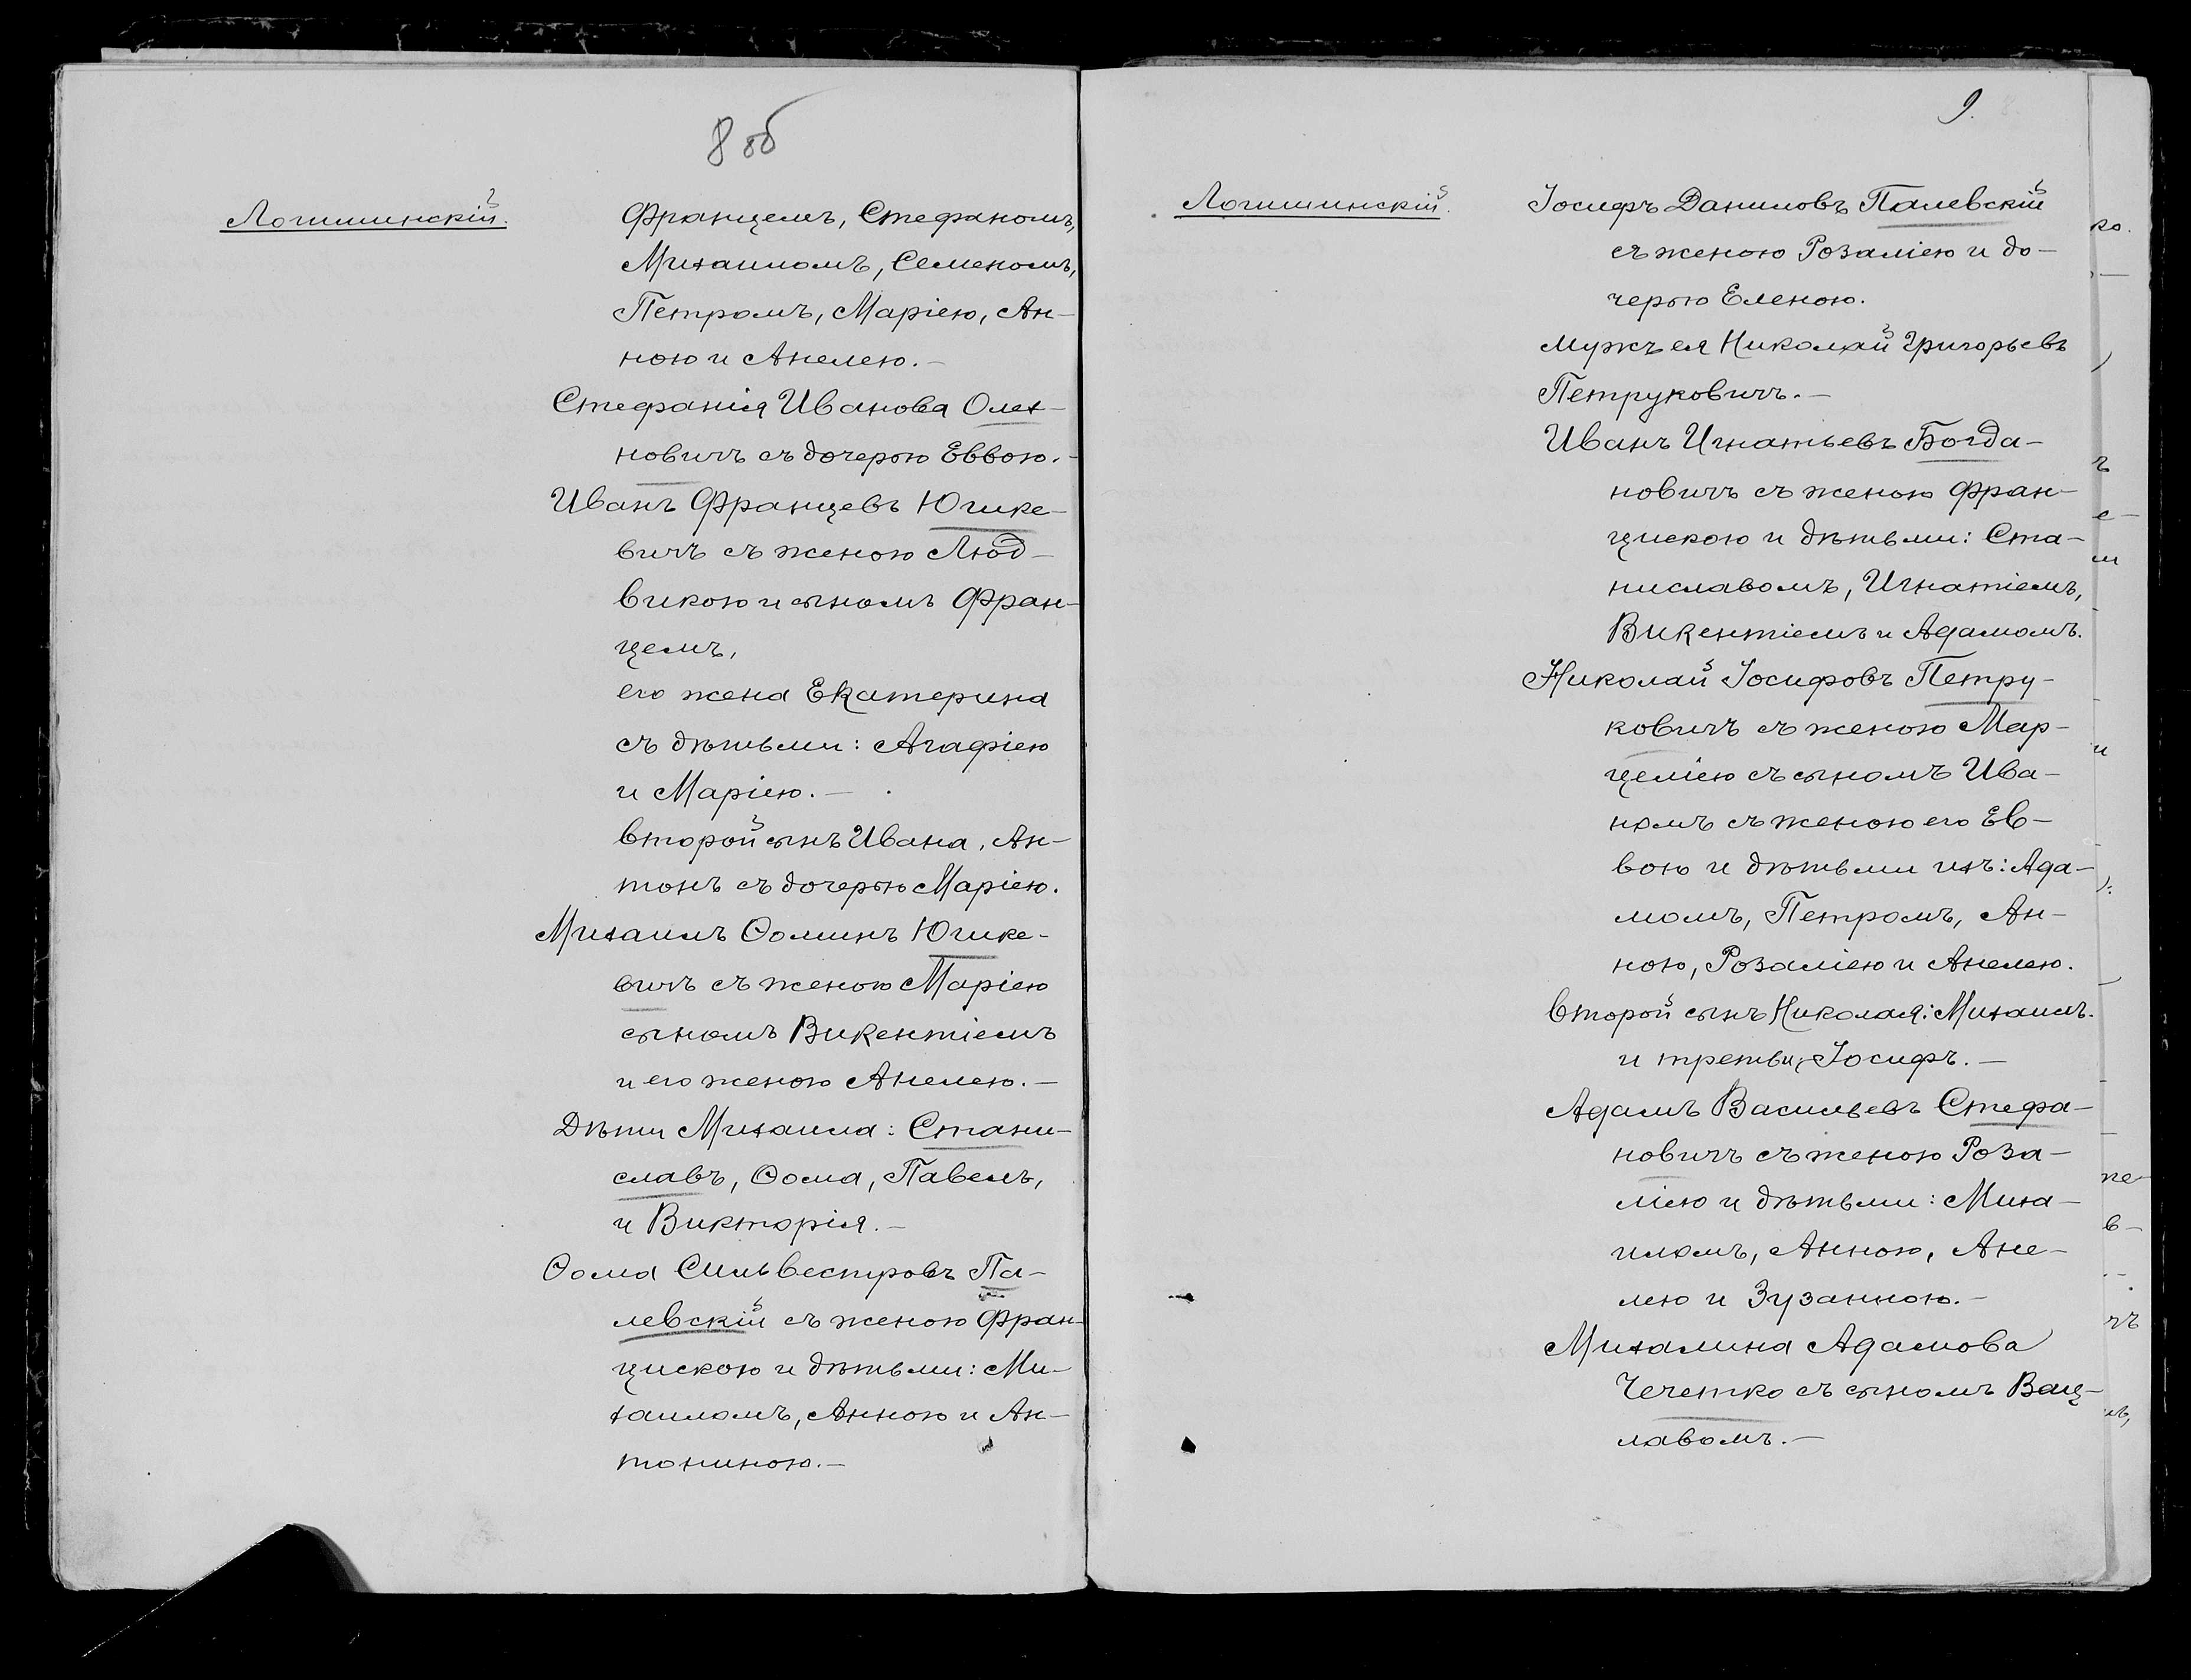 8 об
Логишинскій.
Францемъ, Стефаномъ,
Михаиломъ, Семеномъ,
Петромъ, Маріею, Ан-
ною и Анелею.-
Стефанія Иванова Олех-
новичъ съ дочерью Еввою.-
Иванъ Францевъ Юшке-
вичъ съ женою Люд-
викою и сыномъ Фран-
цемъ,
его жена Екатерина
съ дѣтьми: Агафіею
и Маріею.-
второй сынъ Ивана, Ан-
тонъ съ дочерью Маріею.
Михаилъ Ѳоминъ Юшке-
вичъ съ женою Маріею
сыномъ Викентіемъ
и его женою Анелею.-
Дѣти Михаила: Стани-
славъ, Ѳома, Павелъ,
и Викторія.-
Ѳома Сильвестровъ Па-
левскій съ женою Фран-
цискою и дѣтьми: Ми-
хаиломъ, Анною и Ан-
тониною.-
9.
Логишинскій.
Іосифъ Даниловъ Палевскій
съ женою Розаліею и до-
черью Еленою.
мужъ ея Николай Григорьевъ
Петруковичъ.-
Иванъ Игнатьевъ Богда-
новичъ съ женою Фран-
цискою и дѣтьми: Ста-
ниславомъ, Игнатіемъ,
Викентіемъ и Адамомъ.
Николай Іосифовъ Петру-
ковичъ съ женою Мар-
целіею съ сыномъ Ива-
номъ съ женою его Ев-
вою и дѣтьми ихъ: Ада-
момъ, Петромъ, Ан-
ною, Розаліею и Анелею.
второй сынъ Николая: Михаилъ.
и третьи, Іосифъ.-
Адамъ Васильевъ Стефа-
новичъ съ женою Роза-
ліею и дѣтьми: Миха-
иломъ, Анною, Ане-
лею и Зузанною.-
Михалина Адамова
Чечетко съ сыномъ Вац-
лавомъ.-